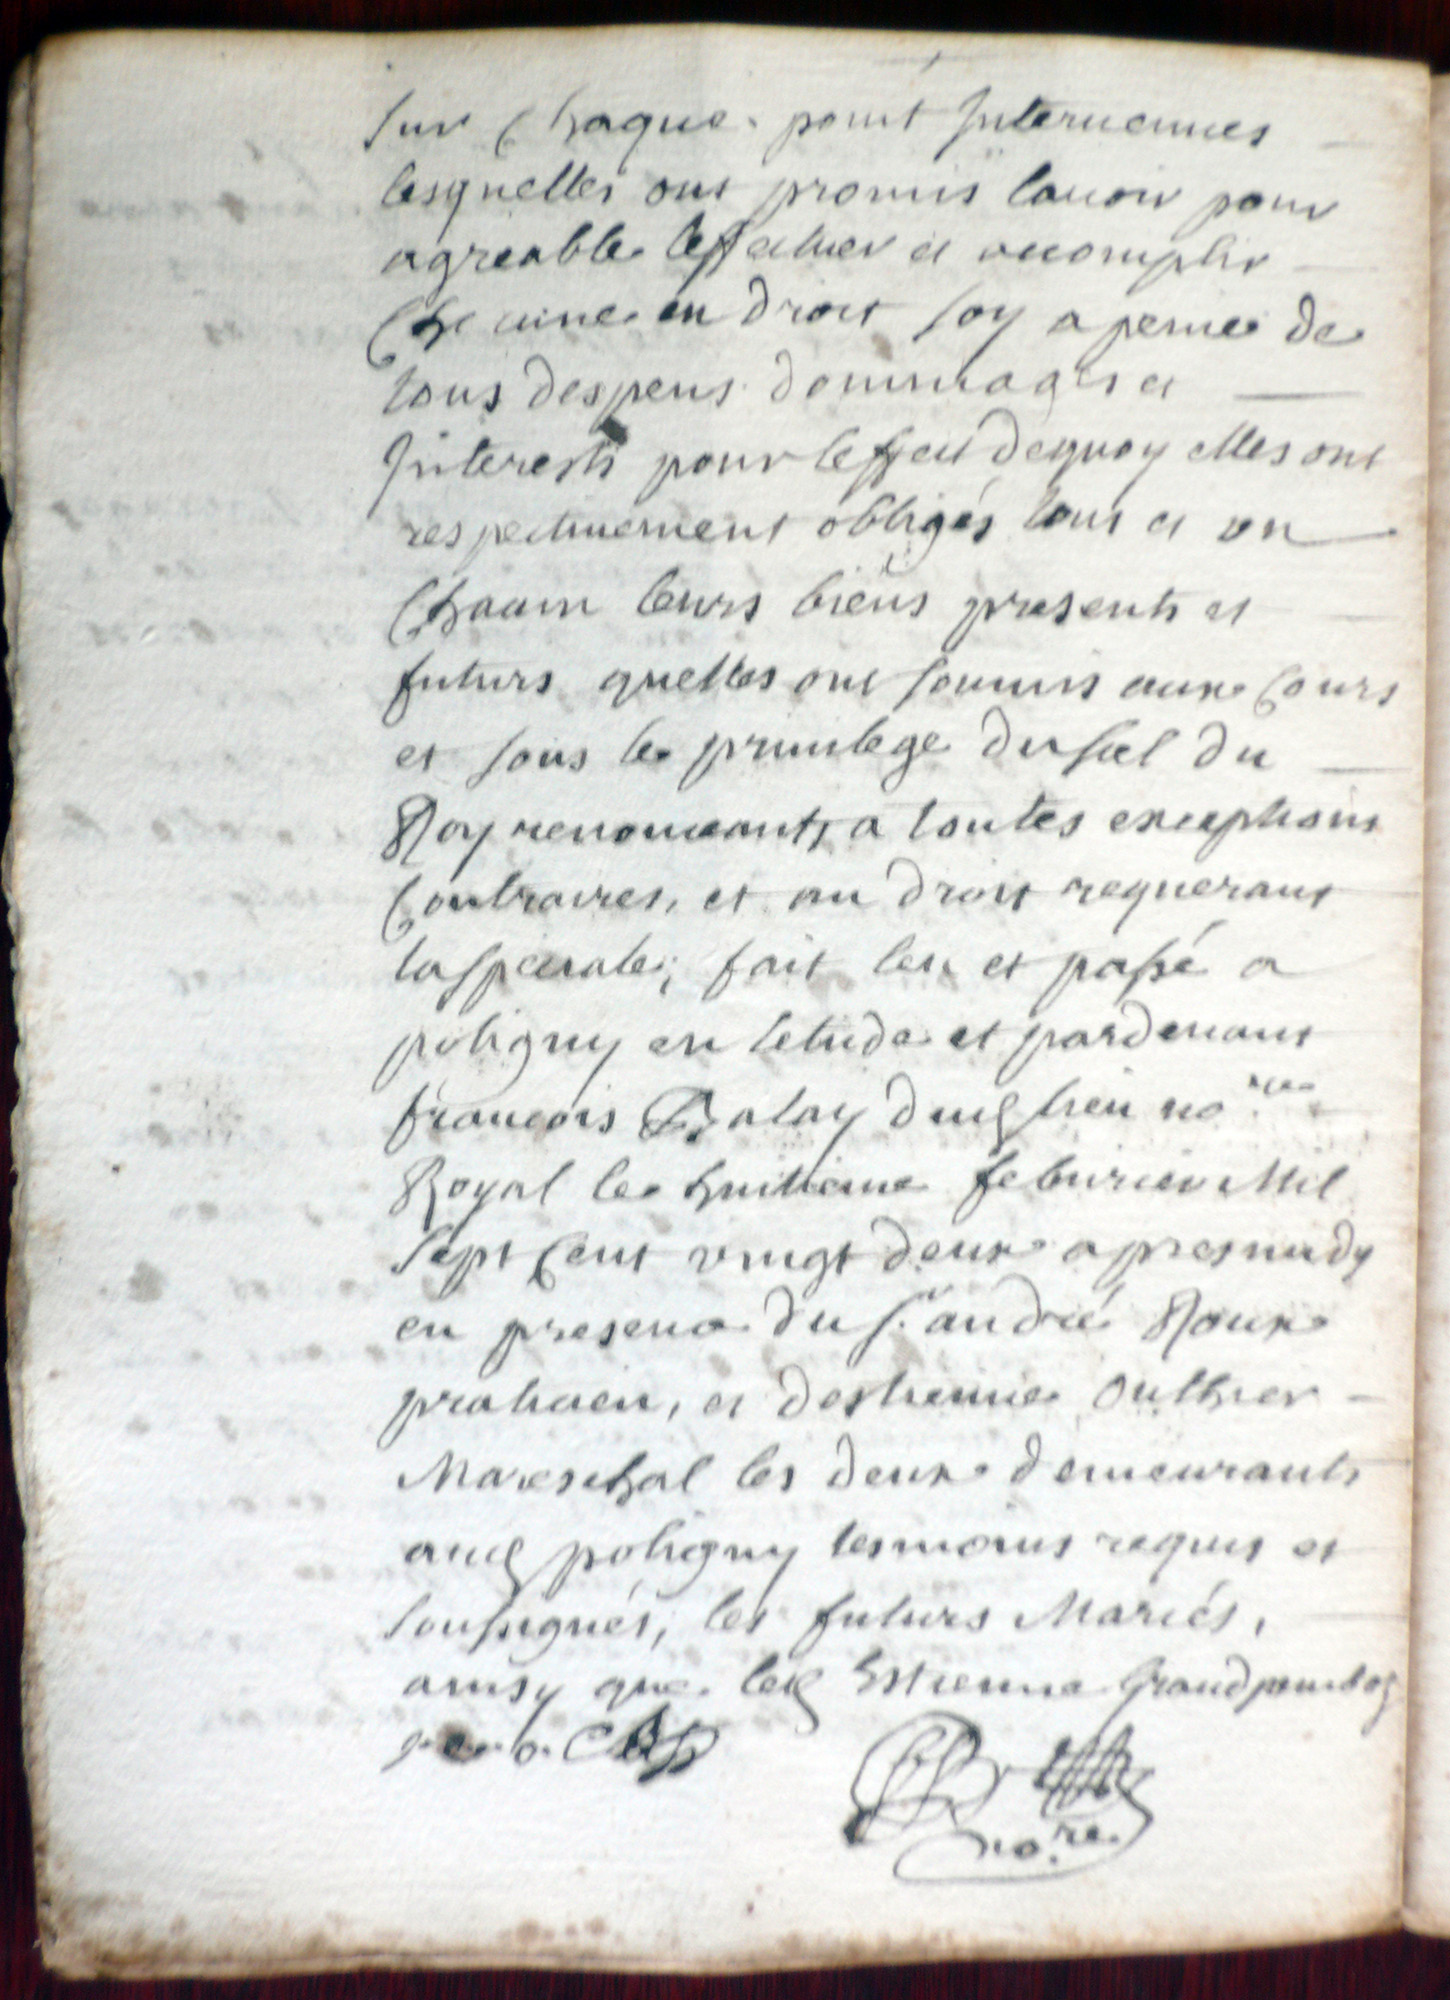 sur Chaque point Interuenues
lesquelles ont promis lauoir pour
agreable leffectuer et accomplir
Chacune en droit soy a peine de
tous despens dommages et
Interests pour leffect dequoy elles ont
respectiuement obligés tous et un
Chacun leurs biens presents et
futurs quelles ont soumis aux Cours
et sous le priuilege du scel du
Roy renonceants a toutes exceptions
Contraires, et au droit requerant
la speciale; fait leu et passé a
poligny en letude et pardeuant
francois Balay dud lieu no.re
Royal le huitieme feburier Mil
sept Cent vingt deux apres midy
en presence du s.r andré Roux
praticien, et destienne Outhier
Mareschal les deux demeurants
aud poligny tesmoins requis et
soussignés, les futurs Mariés,
ainsy que led Estienne Grandpoimboz
no.re